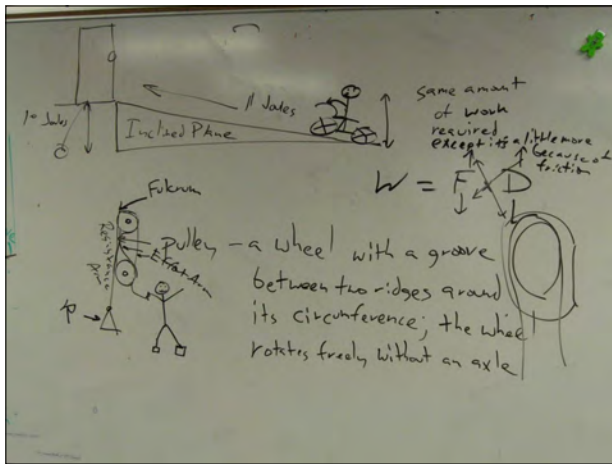 10 Joules
11 Joules
Inclined Plane
same amount
of work
required
except it's a little more
because of
friction
W = F D
Fulcrum
Resistance
Arm
Effort Arm
pulley - a wheel with a groove
between two ridges around
its circumference; the wheel
rotates freely without an axle